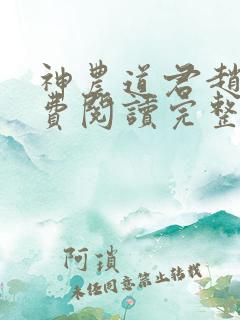 神農道君趙
費閱讀完整
阿瑣
未经同意禁止转载